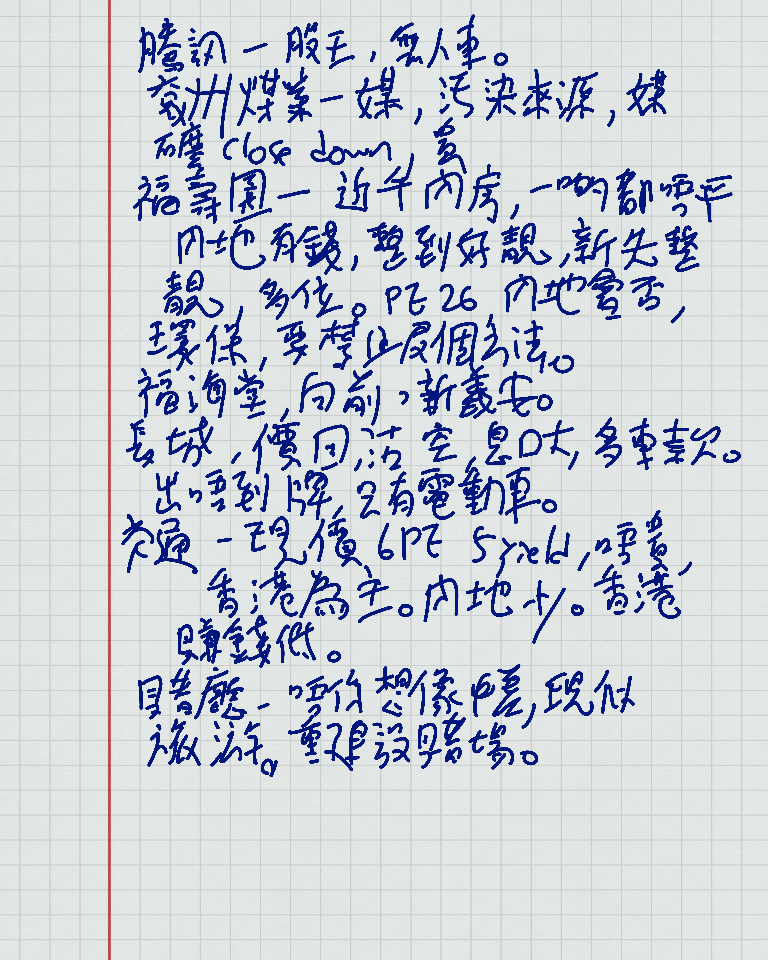 騰訊一股王,無人車。
兗州煤業一媒,污染來源,媒
礦 close down,貴
福壽園一近千內房,一啲都唔平
內地有錢,整到好靚,新先整
靚,多位。PE 26 內地會否,
環保,要禁止個合法。
福海堂,向前,新義安。
長城,價回,沽空,息口大,多車款。
出唔到牌,只有電動車。
交通一現價 6PE 5 yield,唔貴,
香港為主。內地少。香港
賺錢低。
賭廳一唔你想像中差,現似
旅游。重建設賭場。